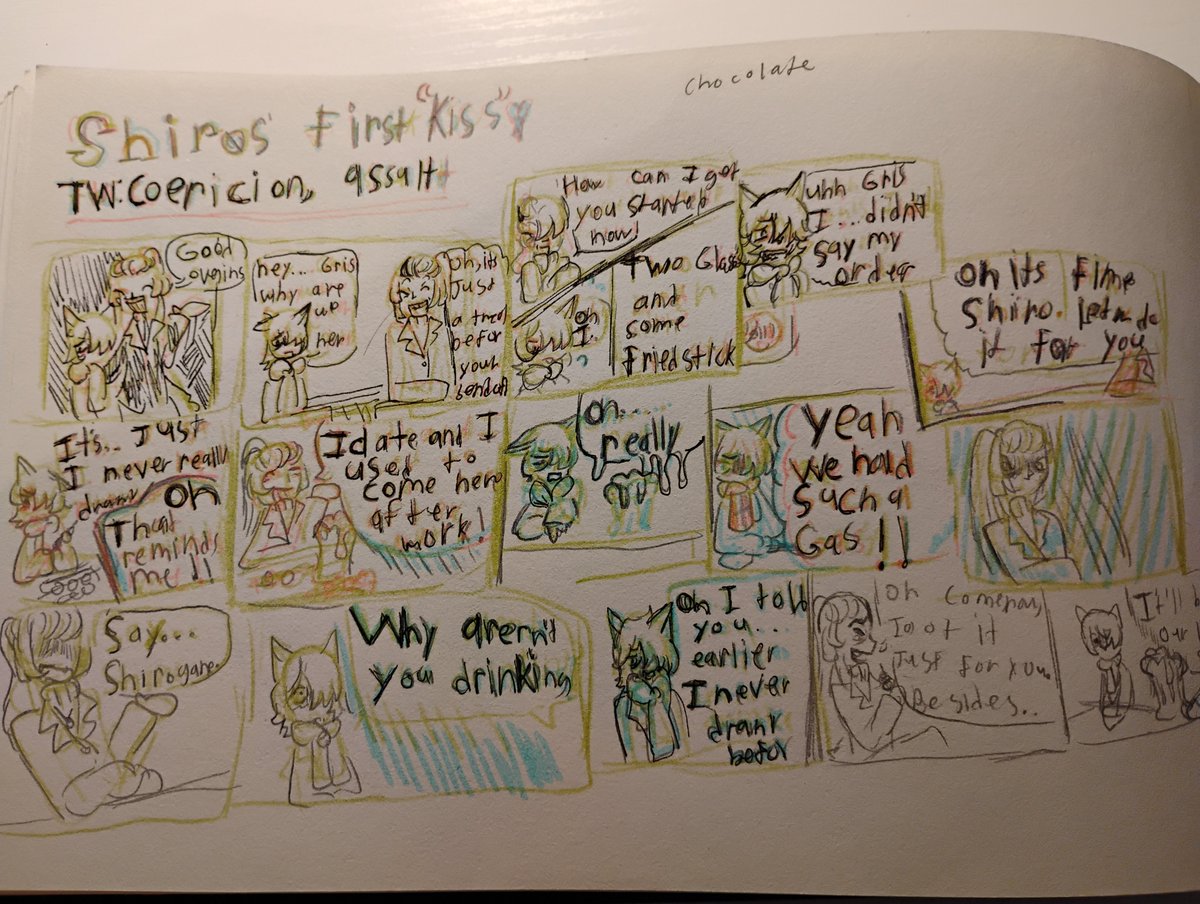 chocolate
Shiros first "Kiss"
TW: Coericion, assalt
Good
hey... Gris
why are
we
her
oh, its
Just
a treat
befor
your
How can I get
you started
now!
oh
I..
Two Glass
and
some
friedstick
uhh Gris
I... didn't
say my
order
oh its fine
Shiro. Let me do
it for you
It's.. Just
I never really
drank
oh
That
reminds
me!!
I date and I
used to
come here
after
work!
oh....
really
yeah
We hald
such a
Gas!!
Say...
Shirogane.
Why arern't
you drinking
Oh I told
you...
earlier
I never
drank
befor
oh comeon,
I got it
Just for you.
Besides..
It'll b
our